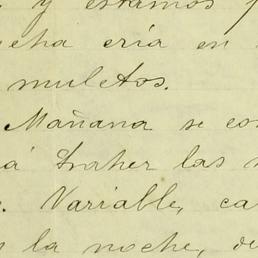 y estamos
cria en
muletos.
Mañana se
á traher las
Variable, ca
la noche, de